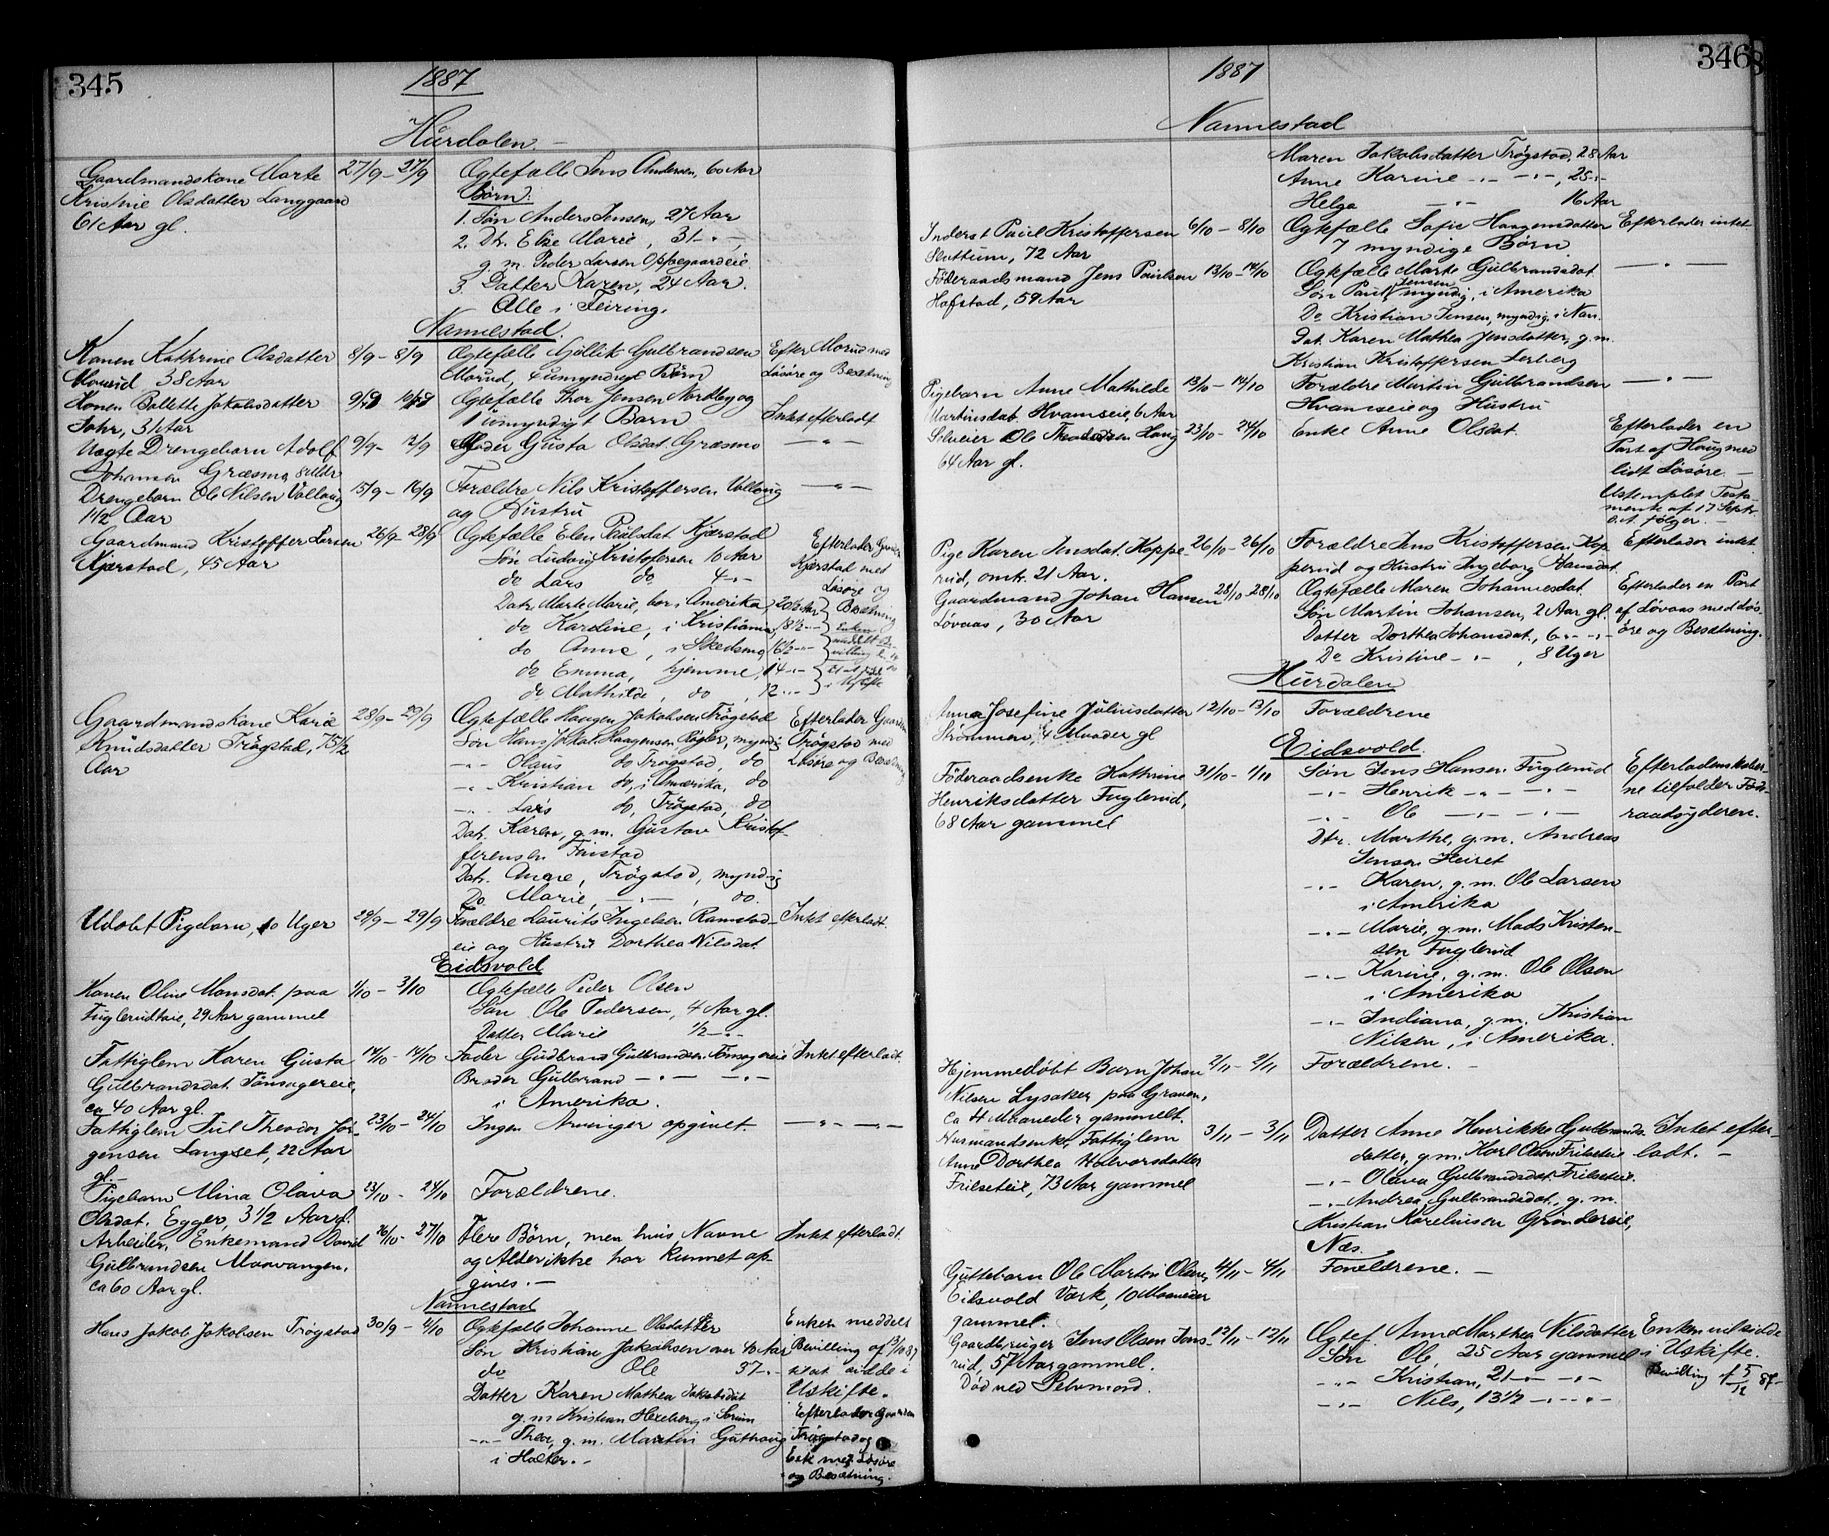 345
1887
Hurdalen. -
Gaardmandskone Marte 27/9 - 27/9 Ægtefælle Jens Andersen, 60 Aar
Kristine Olsdatter Langgaard Børn:
61 Aar gl. 1. Søn Anders Jensen, 27 Aar
2. Dt. Elise Marie, 31 - " -
g. m. Peder Larsen Oppegaardeie
3. Datter Karen, 24 Aar.
Alle i Feiring.
Nannestad.
Konen Kathrine Olsdatter 8/9 - 8/9 Ægtefælle Gullik Gulbrandsen Efter Morud med
Morud 38 Aar Morud, 4 umyndige Børn Løsøre og Besætning
Konen Pallette Jakobsdatter Ægtefælle Thor Jensen Nordby og
Sohr, 31 Aar 1 umyndigt Barn Intet efterladt
Uægte Drengebarn Adolf 9/9 - 12/9 Moder Gusta Olsdat. Græsmo - " -
Johansen Græsmo 8 Mdr
Drengebarn Ole Nilsen Vølloug 15/9 - 16/9 Forældre Nils Kristoffersen Vølloug - " -
1 1/2 Aar og Hustru
Gaardmand Kristoffer Larsen 26/9 - 28/9 Ægtefælle Elen Paulsdat Kjærstad
Kjærstad, 45 Aar Søn Ludvig Kristofersen 16 Aar Efterlader Gaarden
do Lars do 4 - " Kjærstad med
Datr. Marte Marie, bor i Amerika, 20 1/2 Aar Løsøre og
do Karoline, i Kristiania, 18 1/2 - " Besætning
do Anne, i Skedsmo, 16 1/2 - " Enken
do Emma, hjemme, 14 - " meddelt Be-
do Mathilde, do, 12 - " villing
Gaardmandskone Kari 28/9 - 29/9 Ægtefælle Haagen Jakobsen Trøgstad Efterlader Gaarden
Knudsdatter Trøgstad, 75 1/2 Søn Hans Jakob Haagensen Røgler, myndig Trøgstad med
Aar - " - Olaus do Trøgstad, do Løsøre og Besætning
- " - Kristian do, i Amerika, do
- " - Lars do, Trøgstad, do
Datr. Karen, g.m. Gustav Kristof-
fersen Finstad
Datr. Anne, Trøgstad, myndig
Do Marie, - " - , do.
Udøbt Pigebarn, 10 Uger 29/9 - 29/9 Forældre Laurits Ingelsen Ramstad- Intet efterladt.
eie og Hustru Dorthea Nilsdat
Eidsvold
Konen Oline Monsdat. paa 1/10 - 3/10 Ægtefælle Peder Olsen
Fuglerudeie, 29 Aar gammel Søn Ole Pedersen, 4 Aar gl.
Datter Marie 1/2 - " -
Fattiglem Karen Gusta 14/10 - 14/10 Fader Gudbrand Gulbrandsen Tønsagereie Intet efterladt.
Gulbrandsdat. Tønsagereie, Broder Gulbrand - " - - " -
ca 40 Aar gl. i Amerika.
Fattiglem Jul Theodor Jør- 23/10 - 24/10 Ingen Arvinger opgivet. - " - " -
gensen Langset, 22 Aar
gl. -
Pigebarn Mina Olava 23/10 - 24/10 Forældrene.
Olsdat. Egger, 3 1/2 Aar gl.
Arbeider, Enkemand David 26/10 - 27/10 Flere Børn, men hvis Navne Intet efterladt.
Gulbrandsen Morvangen, og Alder ikke har kunnet op-
ca 60 Aar gl. gives. -
Nannestad
Hans Jakob Jakobsen Trøgstad 30/9 - 4/10 Ægtefælle Johanne Olsdatter Enken meddelt
Søn Kristian Jakobsen over 40 Aar Bevilling af
do Ole 37 - " sidde i
Datter Karen Mathea Jakobsdat Uskifte.
g. m Kristian Hexeberg i Sørum Efterlader Gaarden
- " - Thea, g. m. Martin Guthaug Trøgstad og
i Holter. - Eek med Løsøre
og Besætning.
346
1887
Nannestad
Maren Jakobsdatter Trøgstad, 28 Aar
Anne Karine - " - - " -, 25 - " -
Helga - " - 16 Aar
Inderst Paul Kristoffersen 6/10 - 8/10 Ægtefælle Sofie Haagensdatter Efterlader intet
Slottum, 72 Aar 7 myndige Børn
Føderaadsmand Jens Paulsen 13/10 - 14/10 Ægtefælle Marte Gulbrandsdat. - " -
Hofstad, 59 Aar Søn Paul Jensen, myndig, i Amerika
Do Kristian Jensen, myndig, i Nan.
Dat. Karen Mathea Jensdatter, g. m.
Kristian Kristoffersen Aserberg
Pigebarn Anne Mathilde 13/10 - 14/10 Forældre Martin Gulbrandsen - " -
Martinsdat. Hvamseie, 6 Aar Hvamseie og Hustru
Selveier Ole Haug 23/10 - 24/10 Enke Anne Olsdat. Efterlader en
64 Aar gl. Part af Haug med
lidt Løsøre. -
Ustemplet Testa-
mente af 17 Septr.
d.A. følger. -
Pige Karen Jensdat. Koppe- 26/10 - 26/10 Forældre Jens Kristoffersen Kop- Efterlader intet
rud, omtr. 21 Aar. perud og Hustru Ingeborg Hansdat.
Gaardmand Johan Hansen 28/10 - 28/10 Ægtefælle Maren Johannesdat Efterlader en Part
Løvaas, 30 Aar Søn Martin Johansen, 2 Aar gl. af Løvaas med Løs-
Datter Dorthea Johansdat., 6 - " - " - øre og Besætning.
Do Kristine - " - , 8 Uger
Hurdalen
Anna Josefine Juliusdatter 12/10 - 13/10 Forældrene
Strømmen, 4 Maaneder gl
Eidsvold.
Føderaadsenke Kathrine 31/10 - 1/11 Søn Jens Hansen Fuglerud Efterladenskaber-
Henriksdatter Fuglerud, - " - Henrik - " - - " - ne tilfalder Føde-
68 Aar gammel - " - Ole - " - - " - raadsyderen.
Dtr. Marthe, g. m. Andreas
Jensen Heiret
- " - Karen, g. m. Ole Larsen
i Amerika
- " - Marie, g. m. Mads Kristen-
sen Fuglerud
- " - Karine, g. m. Ole Olsen
i Amerika
- " - Indiana, g. m. Kristian
Nilsen, i Amerika.
Hjemmedøbt Barn Johan 2/11 - 2/11 Forældrene. -
Nilsen Lysaker paa Graven,
ca 4 Maaneder gammelt.
Husmandsenke, Fattiglem 3/11 - 3/11 Datter Anne Henrikke Gulbrands- Intet efter-
Anne Dorthea Halvorsdatter datter, g. m. Karl Olsen Frilseteie ladt. -
Frilseteie, 73 Aar gammel - " - Olava Gulbrandsdat. Frilseteie.
- " - Andrea Gulbrandsdat., g. m.
Kristian Karelinsen Grøndereie,
Næs.
Guttebarn Ole Martin Olsen, 4/11 - 4/11 Forældrene. -
Eidsvold Værk, 10 Maaneder
gammel.
Gaardbruger Jens Olsen Jens- 12/11 - 12/11 Ægtef. Anne Marthea Nilsdatter Enken vil sidde
rud, 57 Aar gammel. Søn Ole, 25 Aar gammel i Uskifte.
Død ved Selvmord. - " - Kristian, 21 - " - " - Bevilling af 5/12 87 -
- " - Nils, 13 1/2 - " - " -